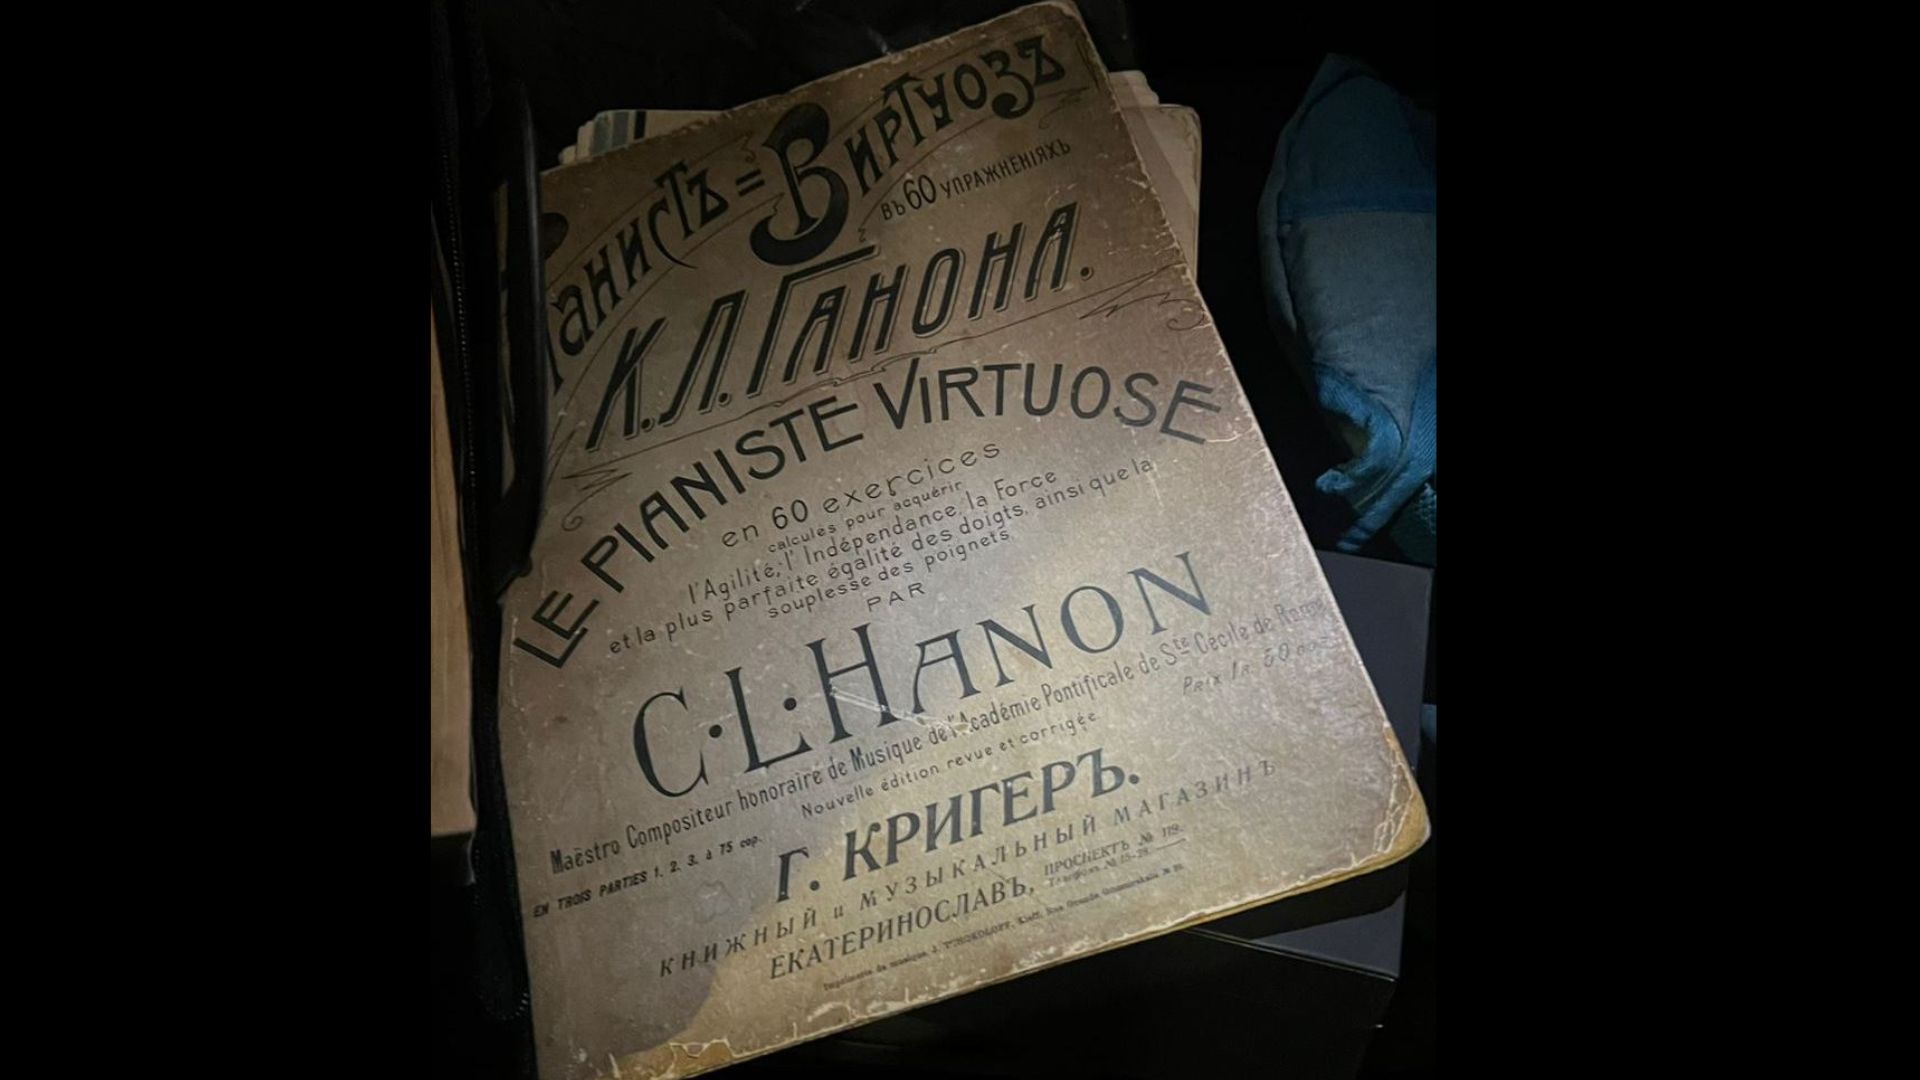 Піанистъ=Виртуозъ
въ 60 упражненіяхъ
К.Л.ГАНОНА.
LE PIANISTE VIRTUOSE
en 60 exercices
calculés pour acquérir
l'Agilité, l'Indépendance, la Force
et la plus parfaite égalité des doigts, ainsi que la
souplesse des poignets
PAR
C.L.HANON
Maëstro Compositeur honoraire de Musique de l'Académie Pontificale de Ste Cécile de Rome
Prix 1 R. 50
Nouvelle édition revue et corrigée
EN TROIS PARTIES 1, 2, 3, à 75 cop.
Г. КРИГЕРЪ.
КНИЖНЫЙ и МУЗЫКАЛЬНЫЙ МАГАЗИНЪ
ЕКАТЕРИНОСЛАВЪ, ПРОСПЕКТЪ № 119.
Телефонъ № 15-28.
Imprimerie de musique J. Kieff,